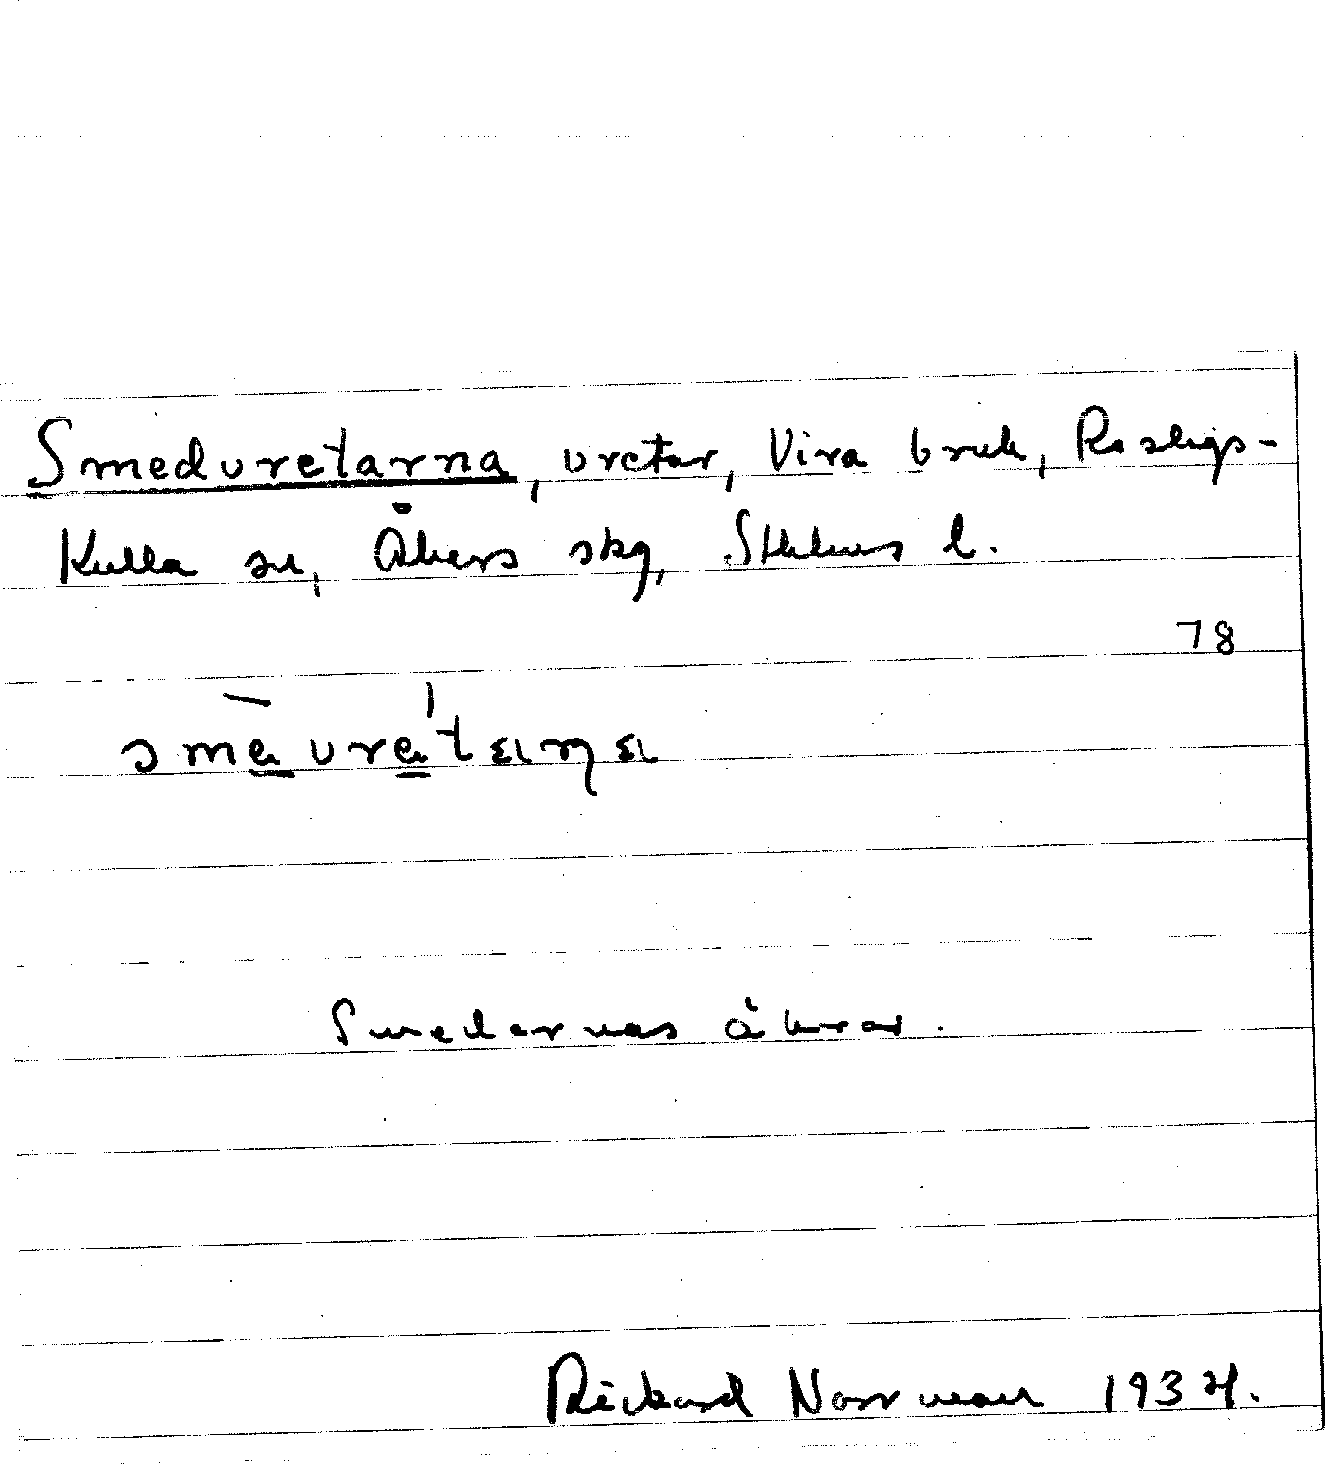 Smedvretarna, vretar, Vira bruk, Roslags-
Kulla sn, Åkers skg, Sthlms l.
78
Smedernas åkrar.
Rickard Norrman 1934.